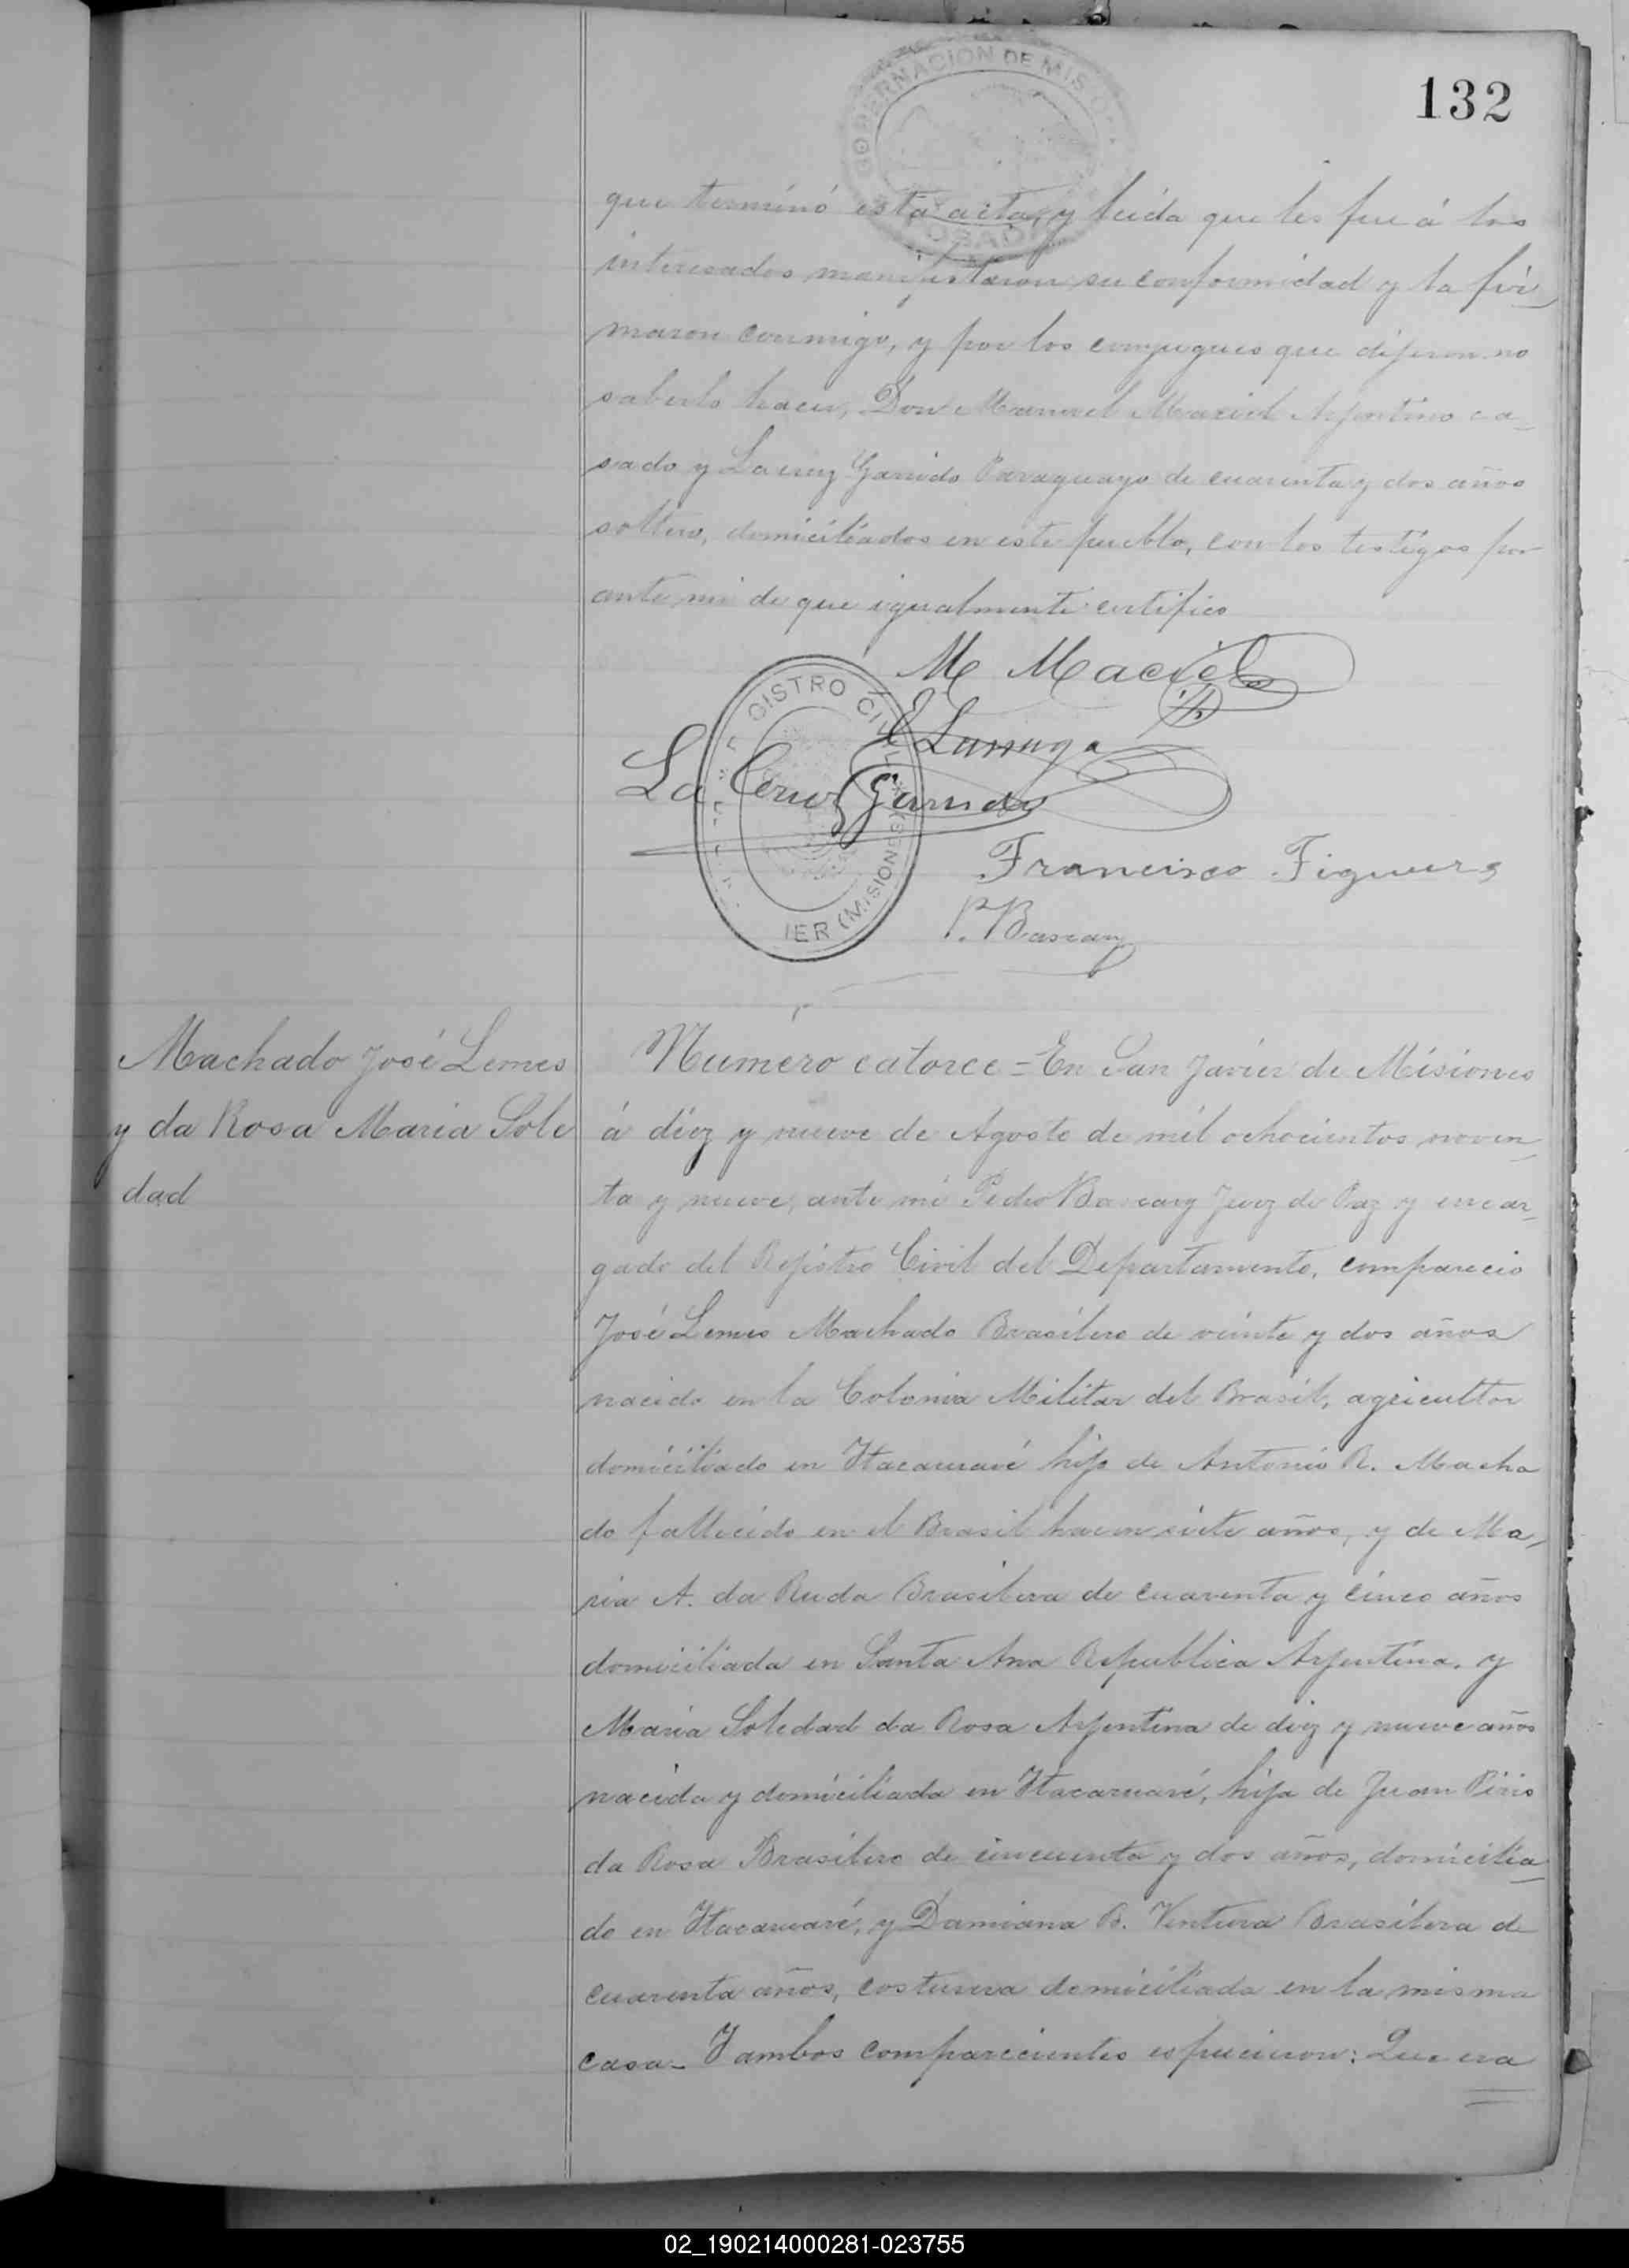 GOBERNACION DE MISIO
POSADAS
132
que terminó esta acta, y leida que les fue á los
interesados manifestaron su conformidad y la fir
maron conmigo, y por los conyugues que dijeron no
saberlo hacer, Don Manuel Maciel Arjentino ca-
sado y Lacruz Garrido Paraguayo de cuarenta y dos años
soltero, domiciliados en este pueblo, con los testigos por
ante mi de que igualmente certifico
M Maciel
GISTRO CIVIL
La Cruz Garrido
IER (MISIONES)
Francisco Figuer
P. Bascary
Machado José Lemes
y da Rosa Maria Sole
dad
Numero catorce = En San Javier de Misiones
á diez y nueve de Agosto de mil ochocientos noven-
ta y nueve, ante mi Pedro Bascary Juez de Paz y encar-
gado del Rejistro Civil del Departamento, comparecio
José Lemes Machado Brasilero de veinte y dos años
nacido en la Colonia Militar del Brasil, agricultor
domiciliado en Itacaruaré hijo de Antonio R. Macha
do fallecido en el Brasil hacen siete años, y de Ma-
ria A. da Ruda Brasilera de cuarenta y cinco años
domiciliada en Santa Ana Republica Arjentina, y
Maria Soledad da Rosa Arjentina de diez y nueve años
nacida y domiciliada en Itacaruaré, hija de Juan Piris
da Rosa Brasilero de cincuenta y dos años, domicilia-
do en Itacaruaré, y Damiana B. Ventura Brasilera de
cuarenta años, costurera domiciliada en la misma
casa- Y ambos comparecientes espucieron: Que era
02_190214000281-023755